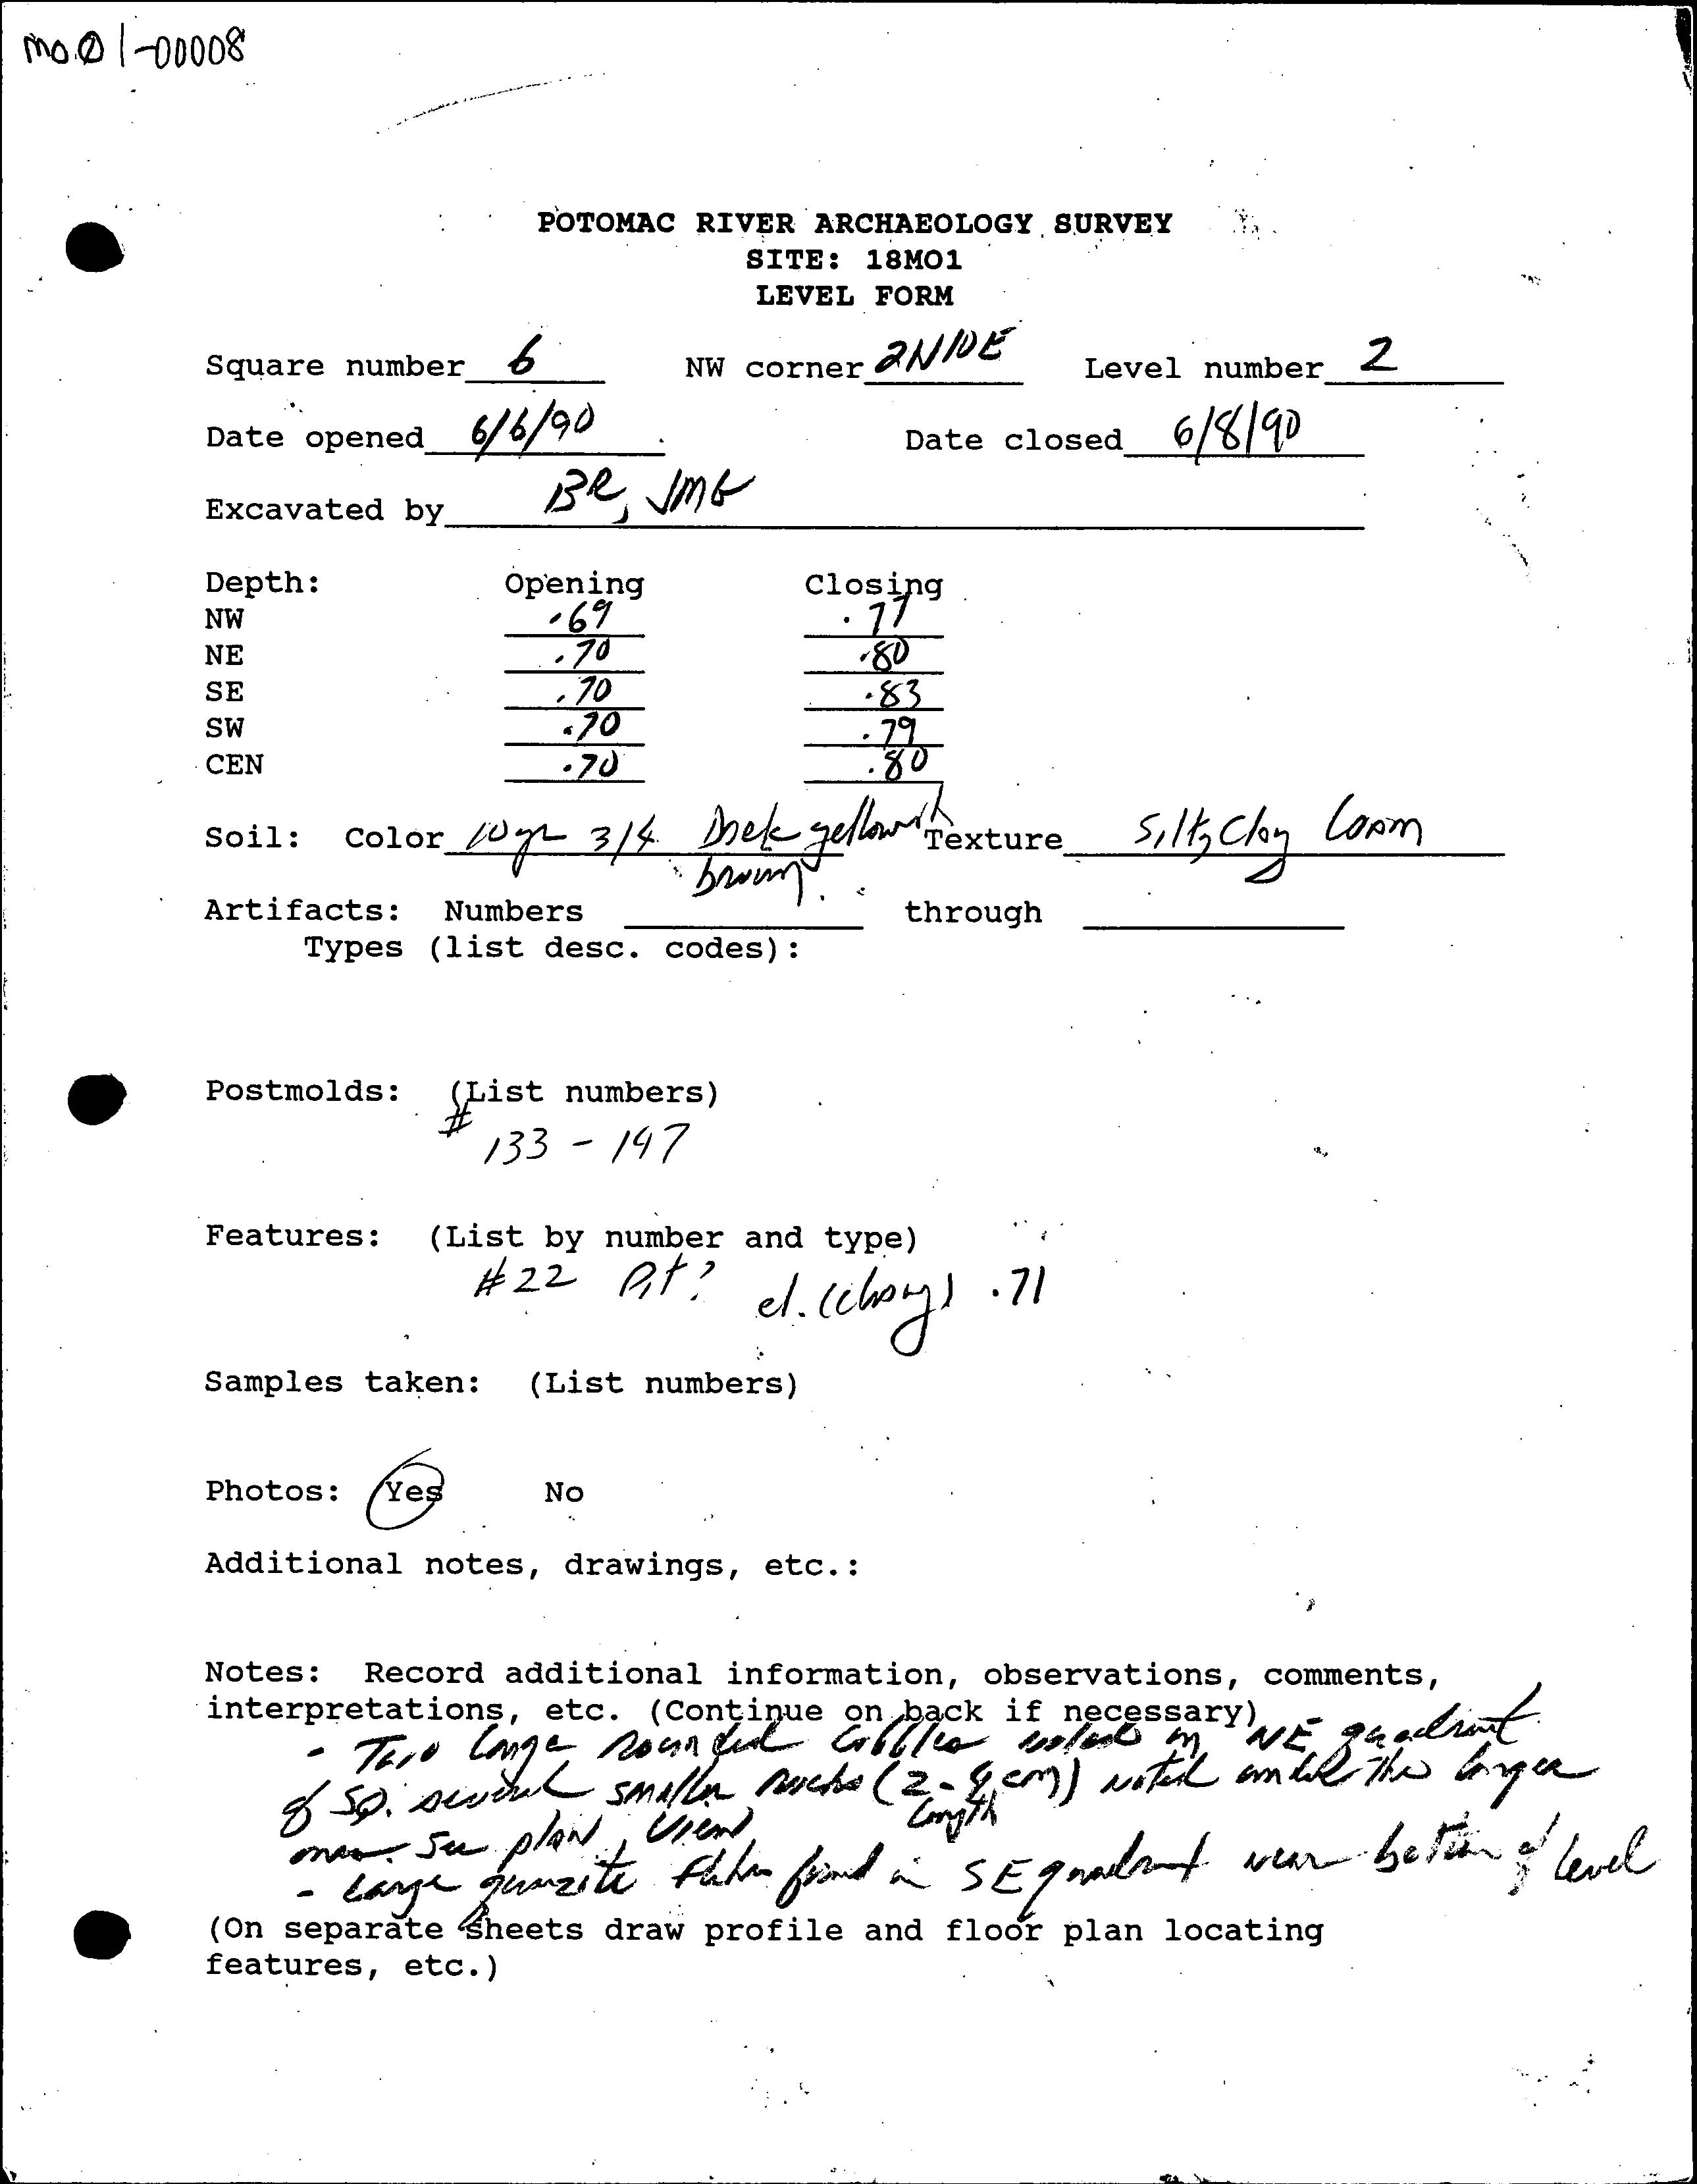 MO.Ø1-00008
POTOMAC RIVER ARCHAEOLOGY SURVEY
SITE: 18MO1
LEVEL FORM
Square number 6 NW corner 2N10E Level number 2
Date opened 6/6/90 Date closed 6/8/90
Excavated by BR, JMG
Depth: Opening Closing
NW .69 .77
NE .70 .80
SE .70 .83
SW .70 .79
CEN .70 .80
Soil: Color 10yr 3/4 Dark yellowish Texture Silty Clay Loam
brown
Artifacts: Numbers through
Types (list desc. codes):
Postmolds: (List numbers)
# 133 - 147
Features: (List by number and type)
#22 Pit? el. (closing) .71
Samples taken: (List numbers)
Photos: Yes No
Additional notes, drawings, etc.:
Notes: Record additional information, observations, comments,
interpretations, etc. (Continue on back if necessary)
- Two large rounded cobbles noted in NE quadrant
of SQ. several smaller rocks (2-4 cm) noted under the larger
length
See plan view
- Large quartzite found in SE quadrant near bottom of level
(On separate sheets draw profile and floor plan locating
features, etc.)